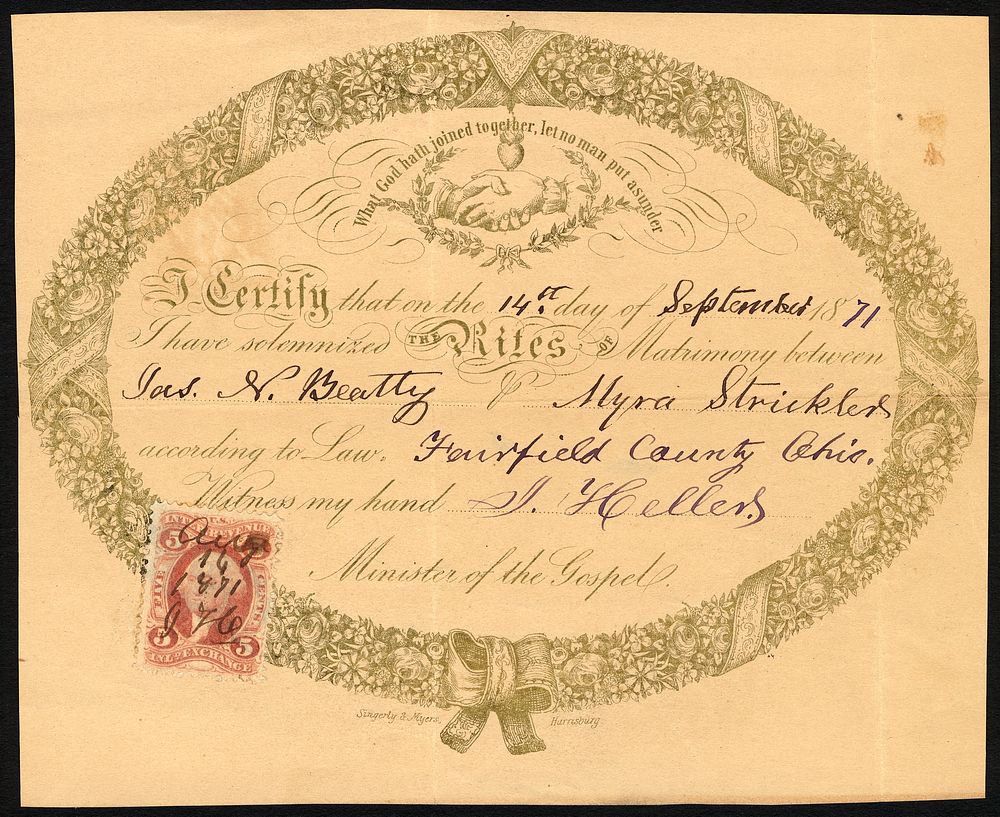 What God hath joined together, let no man put asunder
I Certify that on the 14.st day of September 1871
I have solemnized THE Rites OF Matrimony between
Jas. N. Beatty & Myra Strickler
according to Law. Fairfield County Ohio.
Witness my hand J. Heller
Minister of the Gospel.
INTER. REVENUE
5 5
FIVE CENTS.
Aug
14
1871
J H
5 5
INL'D EXCHANGE
Singerly & Myers, Harrisburg.